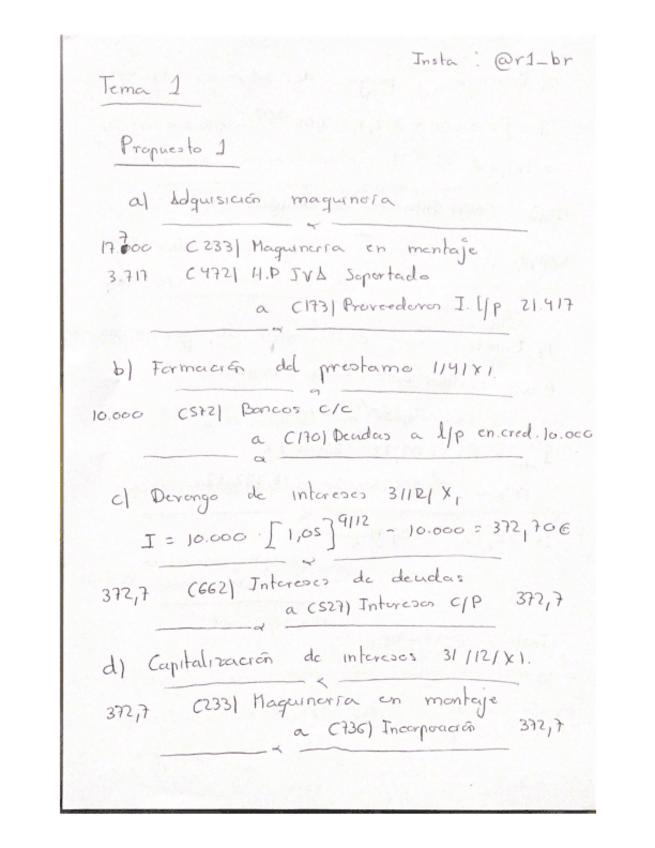 Insta : @r1_br
Tema 1
Propuesto 1
a) Adquisición maquinaria
17700 (233) Maquinaria en montaje
3.717 (472) H.P IVA Soportado
a (173) Proveedores I. l/p 21.417
b) Formación del prestamo 1/4/X1.
10.000 (572) Bancos c/c
a (170) Deudas a l/p en.cred. 10.000
c) Devengo de intereses 31/12/X1
I = 10.000 · [1,05]^9/12 - 10.000 = 372,70€
372,7 (662) Intereses de deudas
a (527) Intereses c/p 372,7
d) Capitalización de intereses 31/12/X1.
372,7 (233) Maquinaria en montaje
a (736) Incorporación 372,7